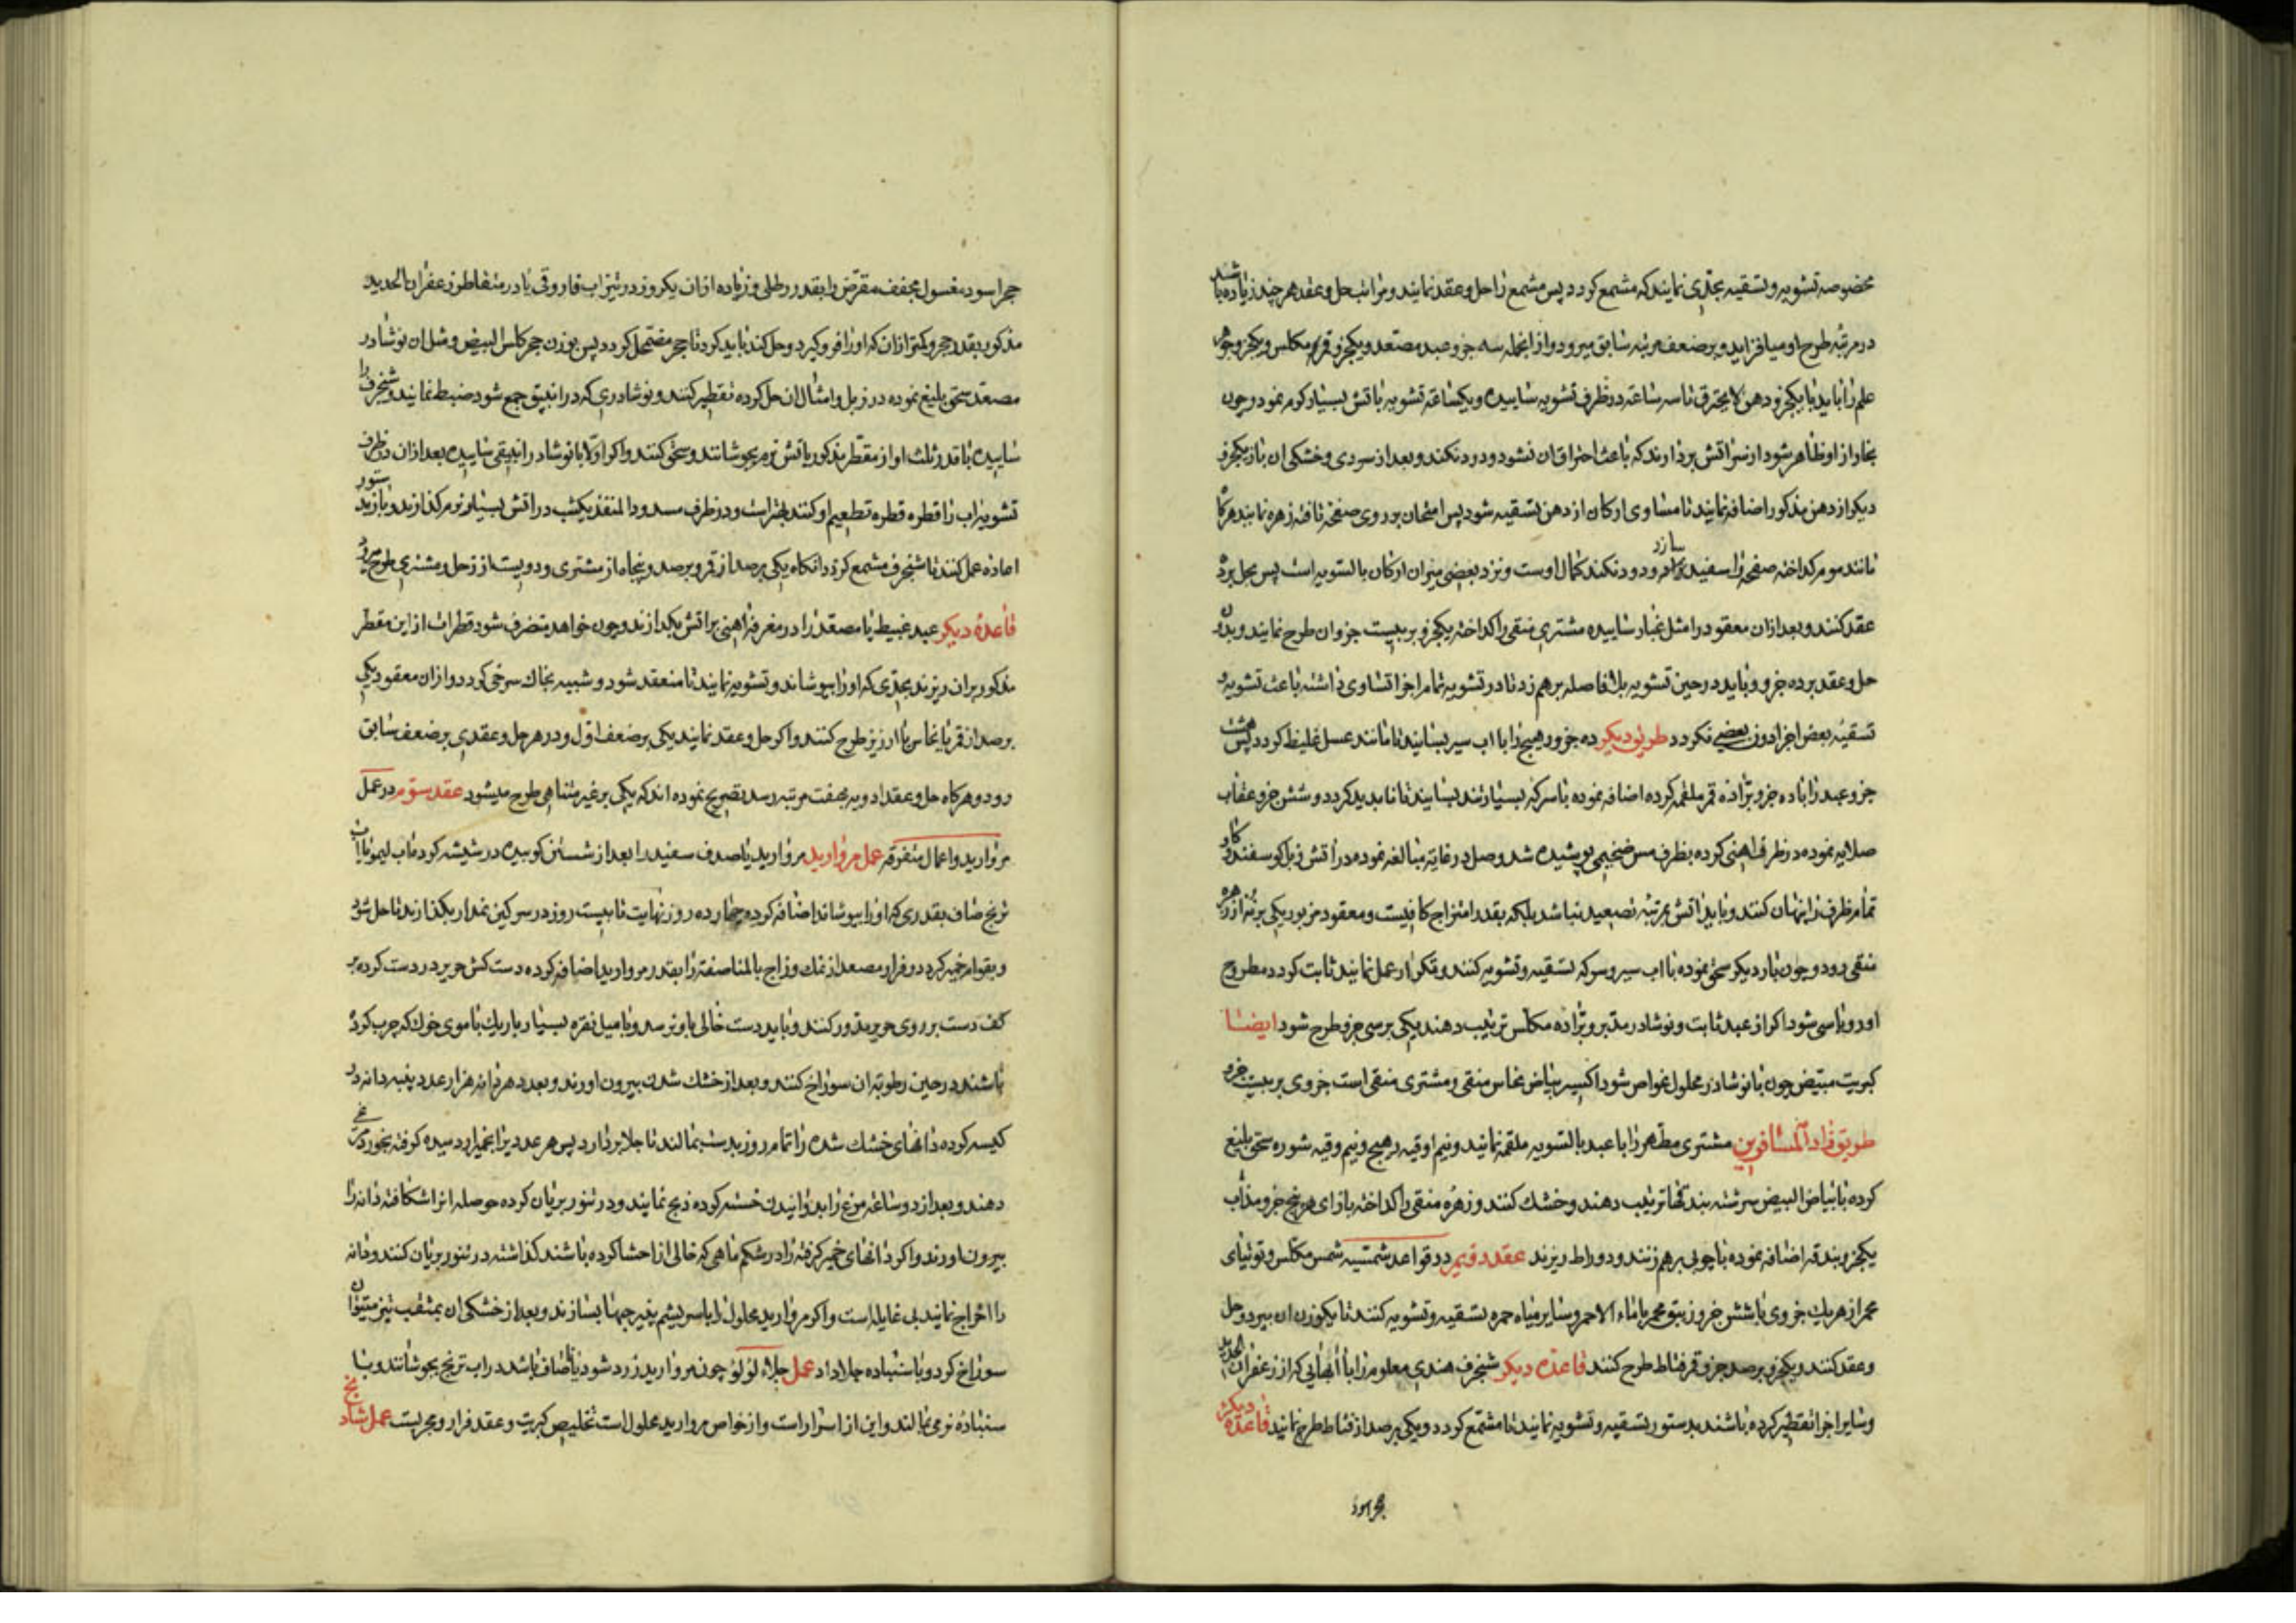 مخصوصه تشویه و تسقیه بحدی نمایند که مشمع کردد پس مشمع را حل و عقد نمایند و مراتب حل و عقد هر چند زیاده باشد
در مرتبه طرح او میافزاید و بر ضعف مرتبه سابق میرود و از انجمله سه جزو عبد مصعد و یکجزو قمر مکلس و یکجزو جوهر
علم را باید با یکجزو دهن لایحترق تا سه ساعته در ظرف تشویه ساییده و یکساعته تشویه باتش بسیار کم نمود و چون
بخار از او ظاهر شود از سر اتش بردارند که باعث احتراق ان نشود و دود نکند و بعد از سردی و خشکی ان باز یکجزو
دیکر از دهن مذکور اضافه نمایند تا مساوی ارکان از دهن تسقیه شود پس امتحان بر روی صفحه تافته زهره نمایند هرکاه
مانند موم کداخته صفحه را سفید سازد و دود نکند کمال اوست و نزد بعضی میزان ارکان بالسویه است پس بحل برده
عقد کنند و بعد ازان معقود را مثل غبار ساییده مشتری منقی را کداخته یکجزو بر بیست جزو ان طرح نمایند و بدون
حل و عقد بر ده جزو و باید در حین تشویه بلافاصله برهم زد تا در تشویه تمام اجزا تساوی داشته باعث تشویه و
تسقیه بعض اجزا دون بعضی نکردد طریق دیکر ده جزو رهج را با اب سیر بسایند تا مانند عسل غلیظ کردد پس هشت
جزو عبد را با ده جزو براده قمر ملغمه کرده اضافه نموده با سرکه بسیار تند بسایند تا ناپدید کردد و شش جزو عقاب
صلایه نموده در ظرف اهنی کرده بظرف مس ضخیمی پوشیده شد وصل در غایت مبالغه نموده در اتش زبل کوسفند کاو
تمام ظرف را پنهان کنند و باید اتش بمرتبه تصعید نباشد بلکه بقدر امتزاج کافیست و معقود مزبور یکی بر نه از زهره
منقی رود و چون بار دیکر سحق نموده با اب سیر و سرکه تسقیه و تشویه کنند و تکرار عمل نمایند ثابت کردد مطروح
او رو باسی شود اکر از عبد ثابت و نوشادر مدبر و براده مکلس ترتیب دهند یکی بر سی جزو طرح شود ایضا
کبریت مبیض چون با نوشادر محلول غواص شود اکسیر بیاض نحاس منقی و مشتری منقی است جزوی بر بیست جزو
طریق زاد المسافرین مشتری مطهر را با عبد بالسویه ملغمه نمایند و نیم اوقیه رهج و نیم وقیه شوره سحق بلیغ
کرده با بیاض البیض سرشته بندقها ترتیب دهند و خشک کنند و زهره منقی را کداخته بازای هر پنج جزو مذاب
یکجزو بندقه اضافه نموده با چوبی برهم زنند و در راط ریزند عقد دویم در قواعد شمسیه شمس مکلس و توتیای
محمر از هریک جزوی با شش جزو زیبق محمر با ماء الاحمر و سایر میاه حمره تسقیه و تشویه کنند تا یکوزن ان ببرد و حل
و عقد کنند و یکجزو بر صد جزو قمر فناط طرح کنند قاعده دیکر شنجرف هندی معلوم را با ابهایی که از زعفران الحدید
و سایر اجزا تقطیر کرده باشند بدستور تسقیه و تشویه نمایند تا مشمع کردد و یکی بر صد از فناط طرح نمایند قاعده دیکر
حجر اسود
حجر اسود مغسول مجفف مقرض را بقدر رطلی و زیاده ازان یکروز در تیزاب فاروقی یا در متقاطر زعفران الحدید
مذکور بقدر حجر و کمتر ازان که او را فرو کیرد و حل کند باید کرد تا حجر مضمحل کردد پس بوزن حجر کلس البیض و مثل ان نوشادر
مصعد سحق بلیغ نموده در زبل و امثال ان حل کرده تقطیر کنند و نوشادری که در انبیق جمع شود ضبط نمایند و شنجرف را
ساییده با قدر ثلث او از مقطر مذکور باتش نرم بجوشانند و سحق کنند و اکر اولا با نوشادر انبیقی ساییده بعد ازان در ظرف
تشویه اب را قطره قطره تطعیم او کنند بهتر است و در ظرف مسدود المنفذ یکشب در اتش بسیار نرم کذارند و باز بدستور
اعاده عمل کنند تا شنجرف مشمع کردد انکاه یکی بر صد از قمر و بر صد و پنجاه از مشتری و دویست از زحل و مشتری طرح میرود
قاعده دیکر عبد غبیط یا مصعد را در مغرفه اهنی بر اتش بکدازند و چون خواهد متصرف شود قطرات از این مقطر
مذکور بران ریزند بحدی که او را بپوشاند و تشویه نمایند تا منعقد شود و شبیه بخاک سرخی کردد و ازان معقود یکی
بر صد از قمر یا نحاس یا ارزیز طرح کنند و اکر حل و عقد نمایند یکی بر ضعف اول و در هر حل و عقدی بر ضعف سابق
رود و هرکاه حل و عقد ادویه بهفت مرتبه رسد تصریح نموده اند که یکی بر غیر متناهی طرح میشود عقد سوم در عمل
مروارید و اعمال متفرقه عمل مروارید مروارید یا صدف سفید را بعد از شستن کوبیده در شیشه کرده اب لیمو یا اب
ترنج صاف بقدری که او را بپوشاند اضافه کرده چهارده روز نهایت تا بیست روز در سرکین نمدار بکذارند تا حل شود
و بقوام خمیر کردد و فرار مصعد از نمک و زاج بالمناصفه را بقدر مروارید اضافه کرده دست کش حریر در دست کرده بر
کف دست بر روی حریر مدور کنند و باید دست خالی باو نرسد و با میل نقره بسیار باریک یا موی خوک که چرب کرده
باشند در حین رطوبت ان سوراخ کنند و بعد از خشک شدن بیرون اورند و بعدد هر دانه هزار عدد پنبه دانه در
کیسه کرده دانهای خشک شده را تمام روز بدست بمالند تا جلا بردارد پس هر عدد یرا بخمیر ارد سیده کوفته بخورد مرغی
دهند و بعد از دو ساعه مرغ را بدوانیدن خسته کرده ذبح نمایند و در تنور بریان کرده حوصله انرا شکافته دانه را
بیرون اورند و اکر دانهای خمیر کرفته را در شکم ماهی که خالی از احشا کرده باشند کذاشته در تنور بریان کنند و دانه
را اخراج نمایند بی غایله است و اکر مروارید محلول را با سریشم پنیر جبها بسازند و بعد از خشکی ان بمثقب نیز میتوان
سوراخ کرد و با سنباده جلا داد عمل جلاء لؤلؤ چون مروارید زرد شود یا ناصاف باشد در اب ترنج بجوشانند و با
سنباده نرمی بمالند و این از اسرار است و از خواص مروارید محلول است تخلیص کبریت و عقد فرار و مجربست عمل شادنج